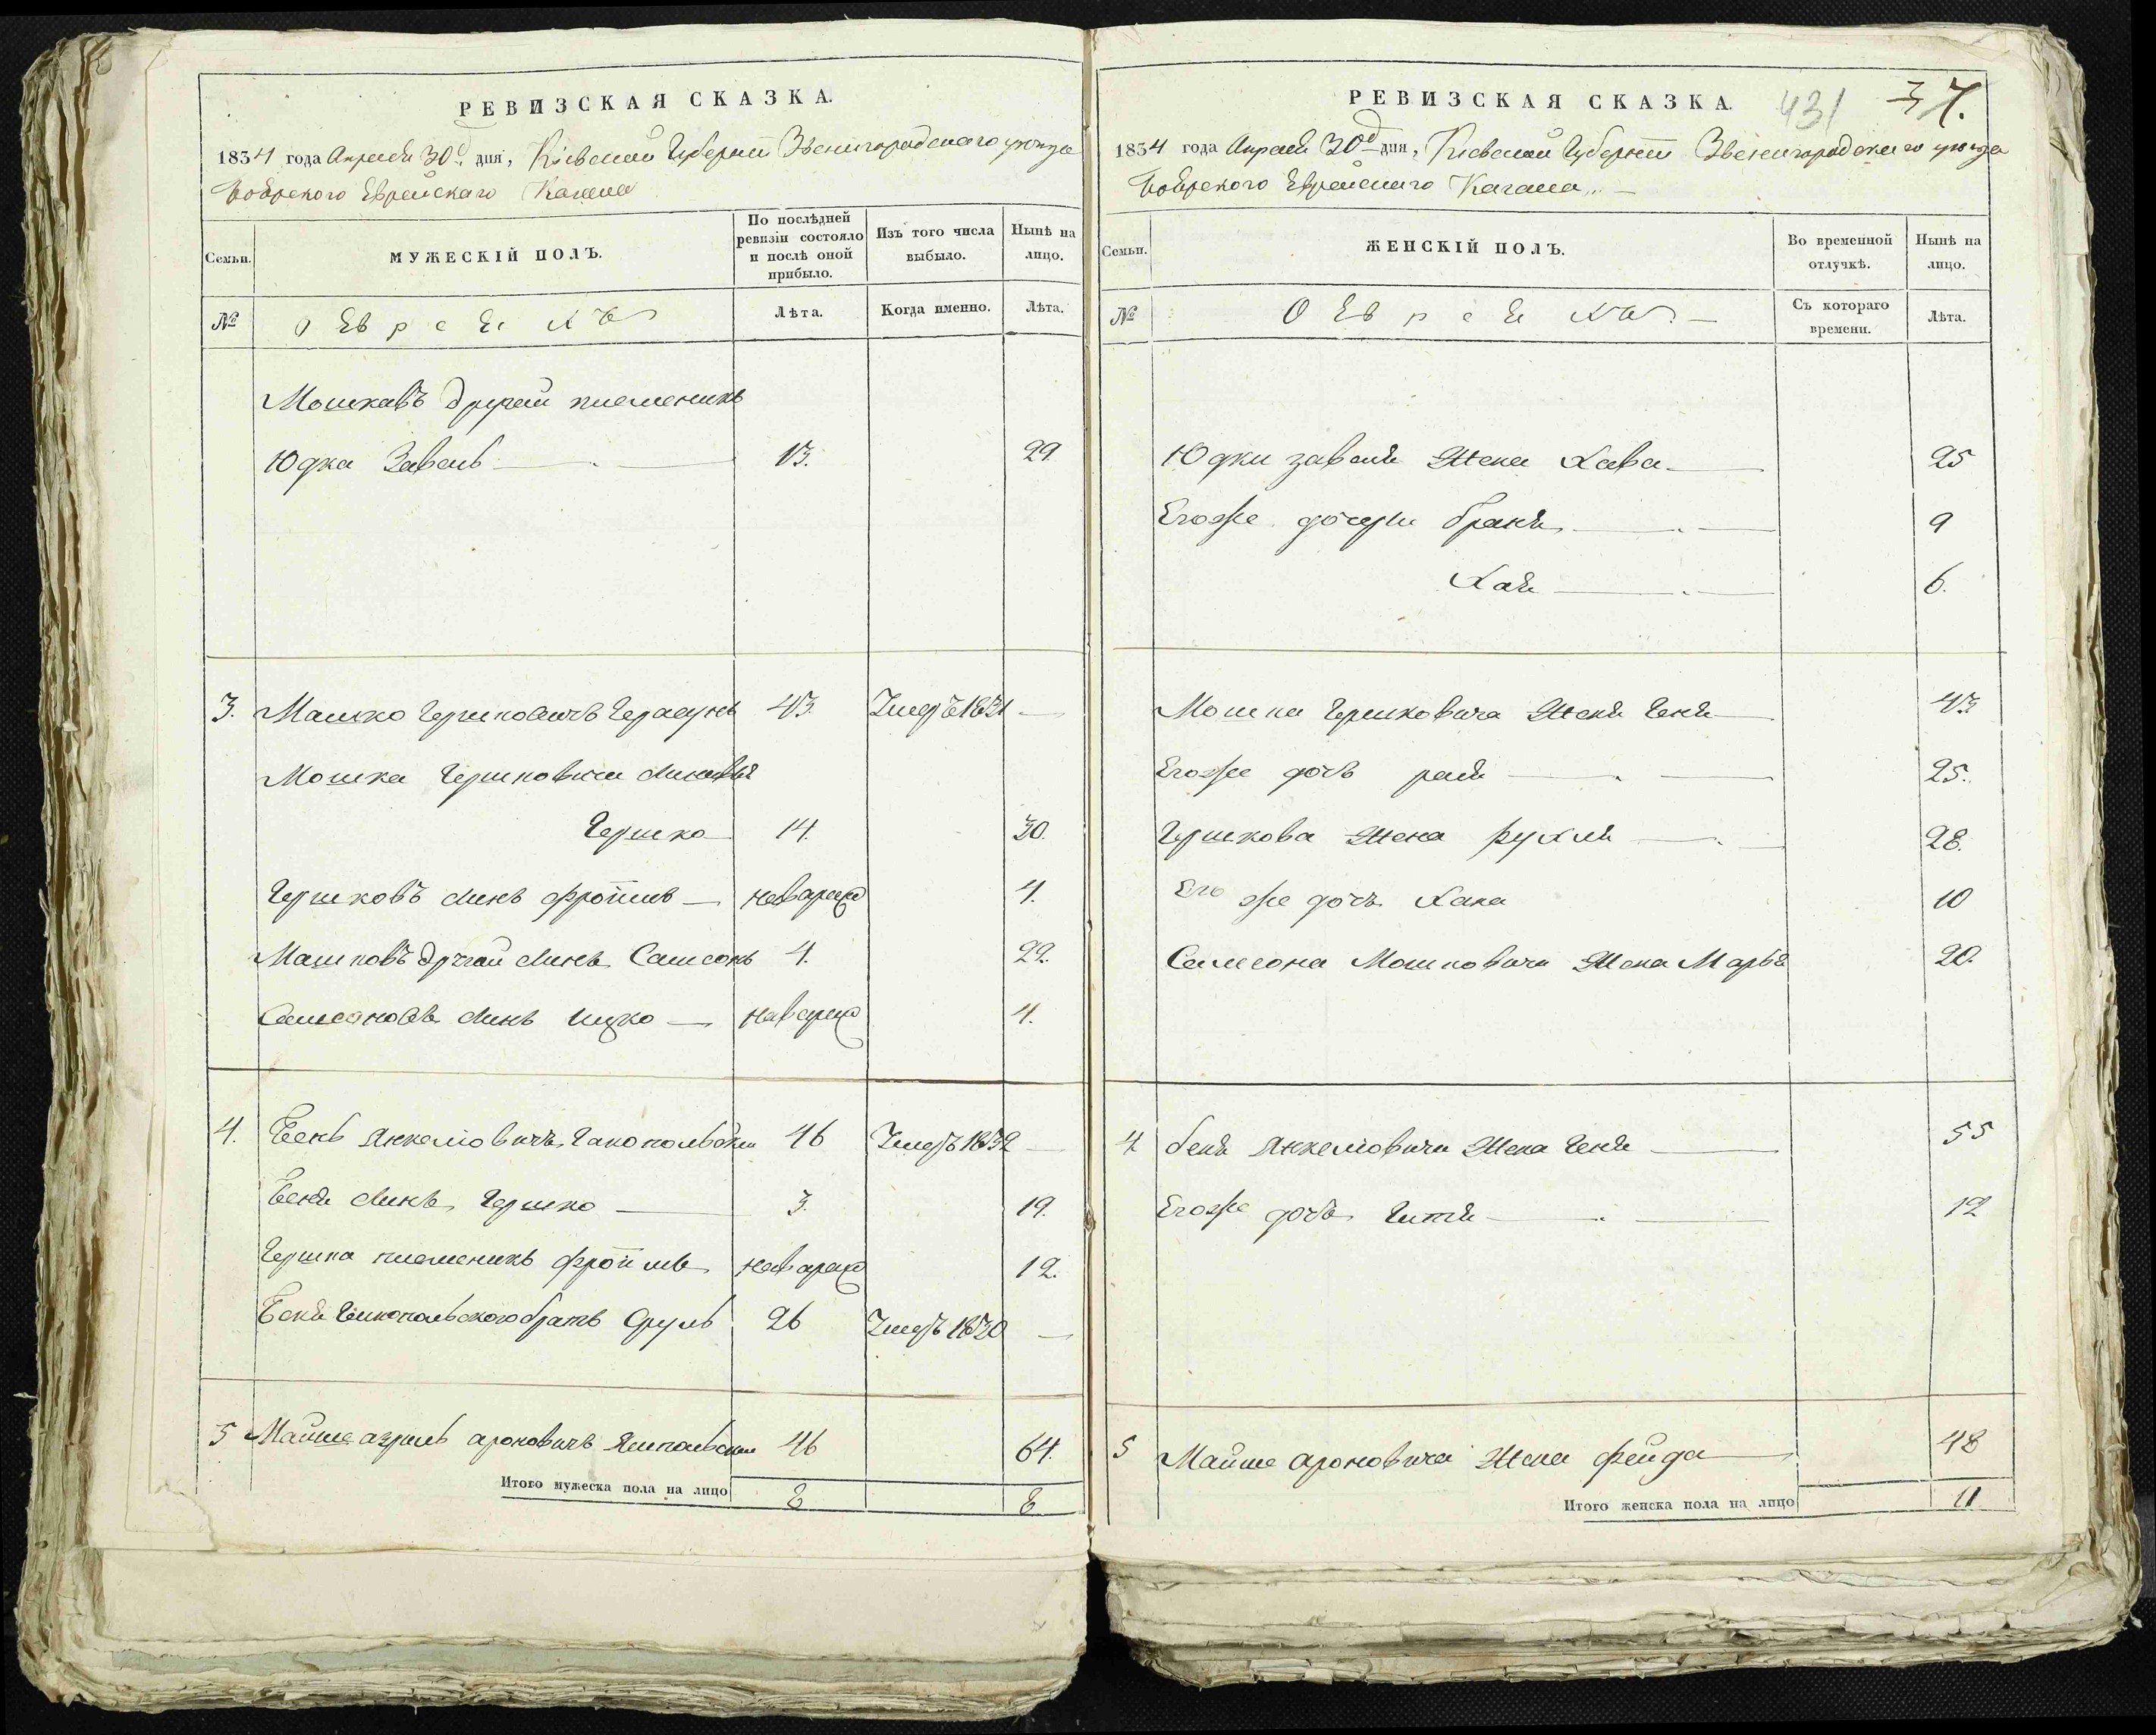 РЕВИЗСКАЯ СКАЗКА.
1834 года Апреля 30д. дня, Кіевской Губерніи Звенигородскаго уѣзда
Боярского Еврейскаго Кагала
Семьи.
МУЖЕСКІЙ ПОЛЪ.
По послѣдней ревизіи состояло и послѣ оной прибыло.
Изъ того числа выбыло.
Нынѣ на лицо.
№
О Евреяхъ
Лѣта.
Когда именно.
Лѣта.
Мошковъ другой племеникъ
Юдка Завель 13. 29.
3. Мошко Гершковичъ 43 Умеръ 1831
Мошка Гершковича
Гершко 14. 30.
Гершковъ синъ Фроимъ наваражд 4.
Мошковъ другой синъ Самсонъ 4. 22.
Самсоновъ синъ Ицко наваражд 4.
4. Бень Янкелювичъ 46 Умеръ 1832
Беня синъ Гершко 3. 19.
Гершка племеникъ Фроимъ наваражд 12.
Беня братъ Сруль 26 Умеръ 1830
5 Майше азриль ароновичъ Ямпольскій 46 64.
Итого мужеска пола на лицо 8 8
РЕВИЗСКАЯ СКАЗКА.
431 37.
1834 года Апреля 30д дня, Кіевской Губерніи Звенигородскаго уѣзда
Боярского Еврейскаго Кагала
Семьи.
ЖЕНСКІЙ ПОЛЪ.
Во временной отлучкѣ.
Нынѣ на лицо.
№
О Евреяхъ
Съ котораго времени.
Лѣта.
Юдки завеля Жена Хава 25
Егоже дочери браня 9
Хая 6.
Мошка Гершковича Жена Геня 43
Егоже дочь рая 25.
Гершкова Жена Рухля 28.
Его же дочъ Хана 10
Самсона Мошковича Жена Марья 20.
4 беня Янкелювича Жена Геня 55
Егоже дочъ Гитя 12
5 Майше Ароновича Жена Фейда 48
Итого женска пола на лицо 11